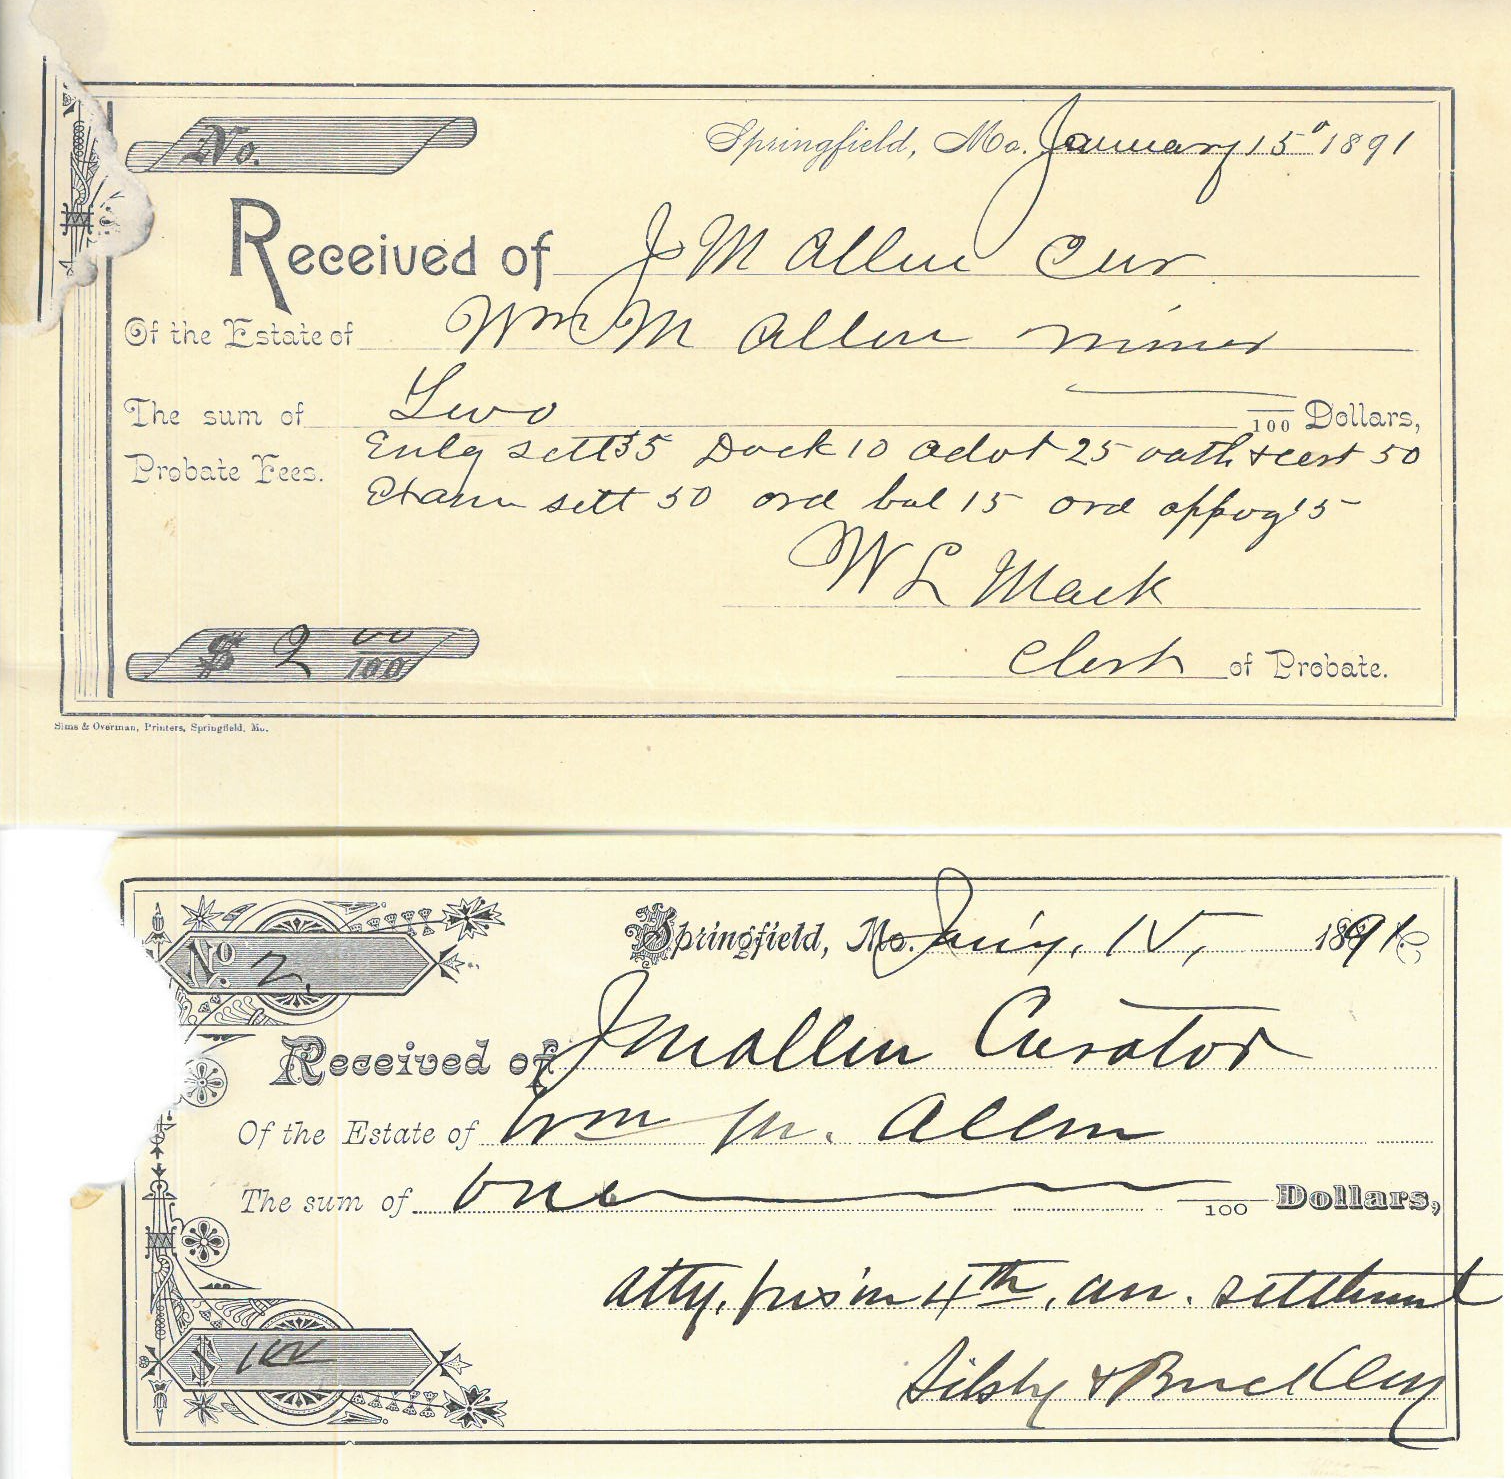 No.
Springfield, Mo. January 15" 1891
Received of J M Allen Cur
Of the Estate of Wm M Allen minor
The sum of Two /100 Dollars,
Probate Fees. sett 35 Dock 10 advt 25 oath & cert 50
Exam sett 50 ord bal 15 ord 15
W L Mack
$ 2 00/100
Clerk of Probate.
Sims & Overman, Printers, Springfield, Mo.
No. 2.
Springfield, Mo. 1891
Received of J M Allen Curator
Of the Estate of Wm M. Allen
The sum of One /100 Dollars,
atty. in 4th, an. settlement
$ 100
Silsby & Buckley